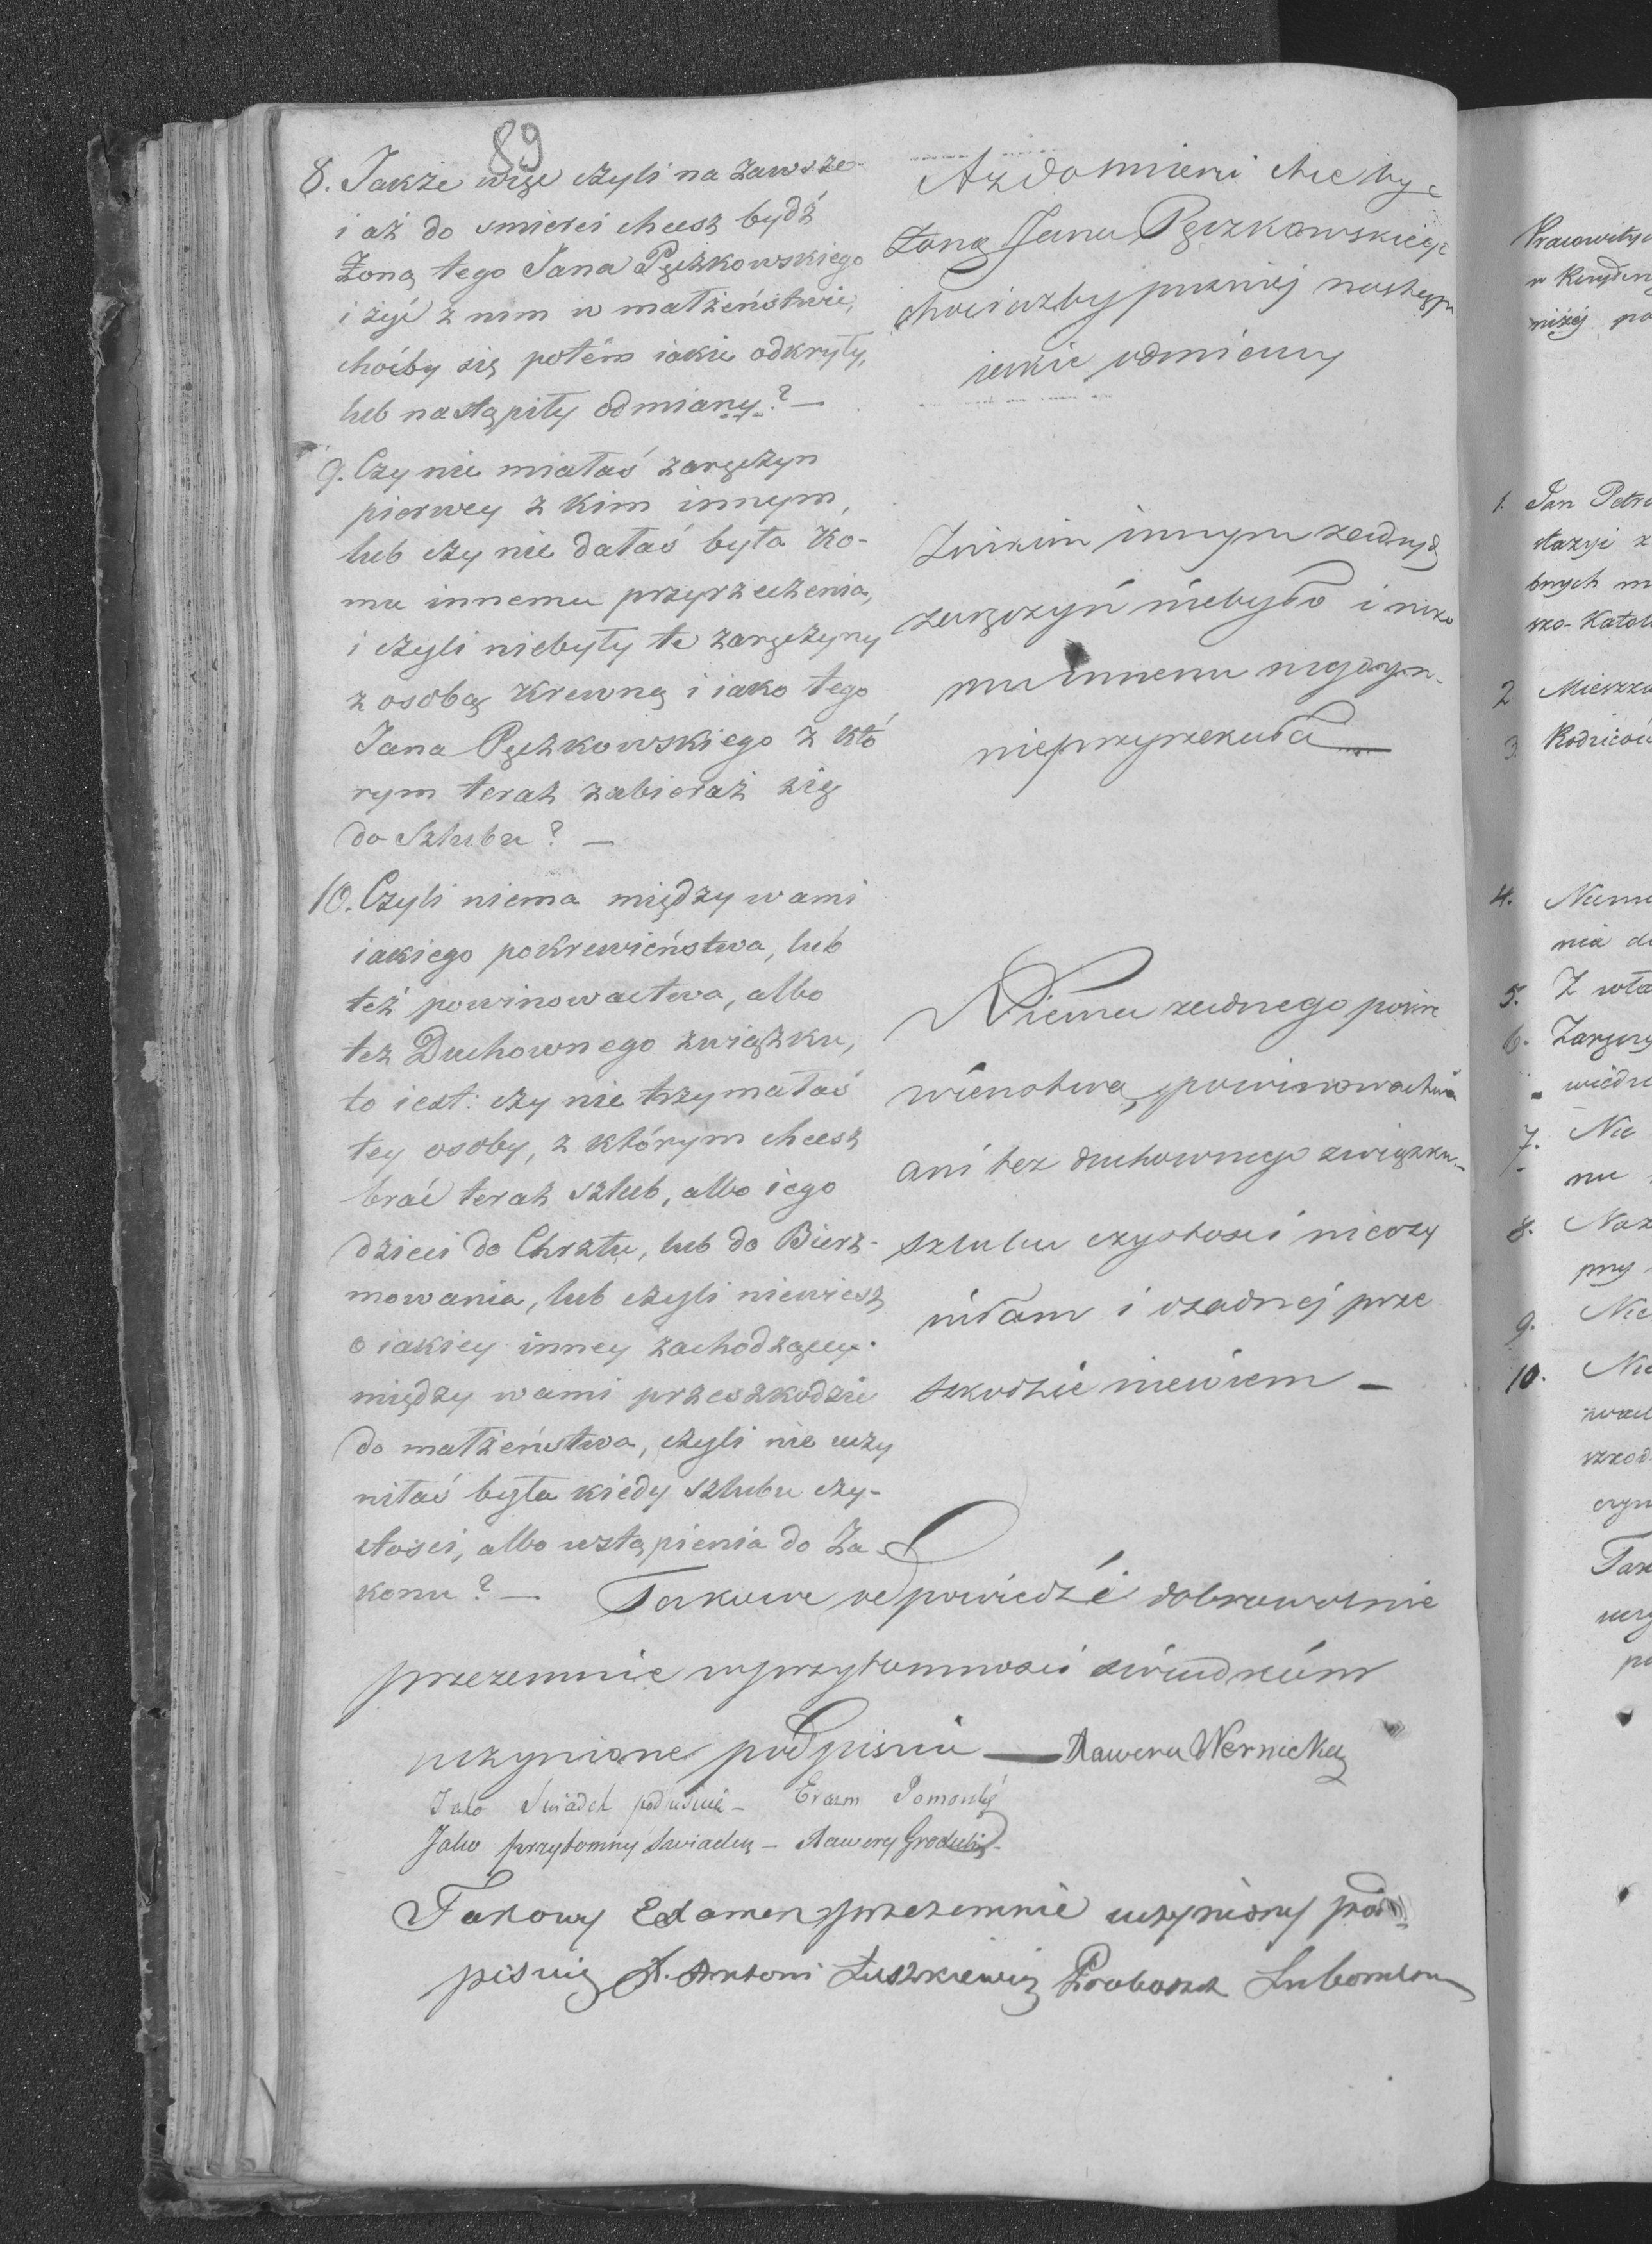 89
8. Jakże więc czyli na zawsze
i aż do smierci chcesz bydź
Żoną tego Jana Pęczkowskiego
i żyć z nim w małżeństwie,
choćby się potém iakie odkryły,
lub nastąpiły odmiany? —
Aż do smierci chce być
żoną Jana Pęczkowskiego
chociażby pużniéj nastąpi
iakie odmiany
9. Czy nie miałaś zaręczyn
pierwey z kim innym,
lub czy nie dałaś była ko-
mu innemu przyrzeczenia,
i czyli niebyły te zaręczyny
z osobą krewną i iako tego
Jana Pęczkowskiego z któ
rym teraz zabierasz się
do Szlubu? —
Znikim innym żadnyd
zaręczyń niebyło i niko
mu innemu nigdym
nieprzyrzekała —
10. Czyli niema między wami
iakiego pokrewieństwa, lub
też powinowactwa, albo
też Duchownego związku,
to iest: czy nie trzymałaś
tey osoby, z którym chcesz
brać teraz szlub, albo iego
dzieci do Chrztu, lub do Bierz-
mowania, lub czyli niewiesz
o iakiey inney zachodzącey
między wami przeszkodzie
do małżeństwa, czyli nie uczy
niłaś była kiedy szlubu czy-
stosci, albo wstąpienia do Za-
konu? —
Niema żadnego pokre
wieństwa, powinowactwa
ani też duchownego związku
szlubu czystosci nieczy
niłam i o żadnéj prze
szkodzie niewiem —
Takowe odpowiedzi dobrowolnie
przezemnie w przytomności świadków
uczynione podpisuie — Xawera Wernicka
Jako Swiadek podpisuie — Erazm
Jako przytomny swiadek — Xawery
Takowy Examen przezemnie uczyniony pod-
pisuię X. Antoni Łuszkiewicz Proboszcz
Pracowity
niżéj po
1. Jan Petr
2 Mieszka
3. Rodzicow
4.
nia d
5. Z wła
6.
7. Nie
8.
9. Nie
10. Nie